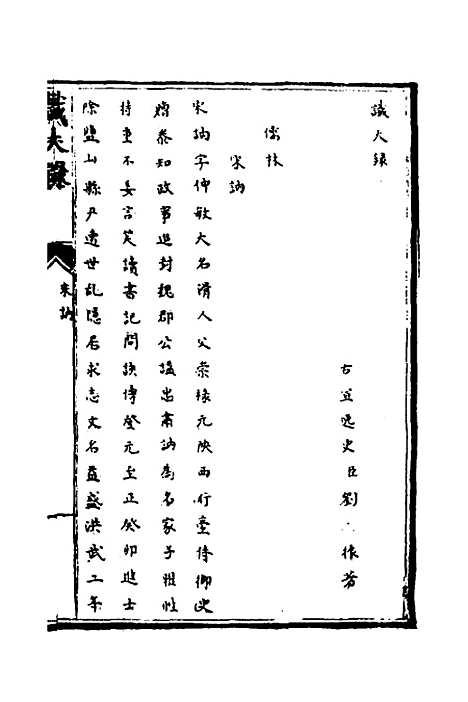 識大録
古宣逸史臣劉振著
儒林
宋訥
宋訥字仲敏大名滑人父崇祿元陝西行臺侍御史
贈叅知政事追封魏郡公謚出肅訥爲名家子雅性
持重不妄言笑讀書記問該博登元至正癸卯進士
除鹽山縣尹遭世乱隱居求志文名益盛洪武二年
識大錄
宋訥